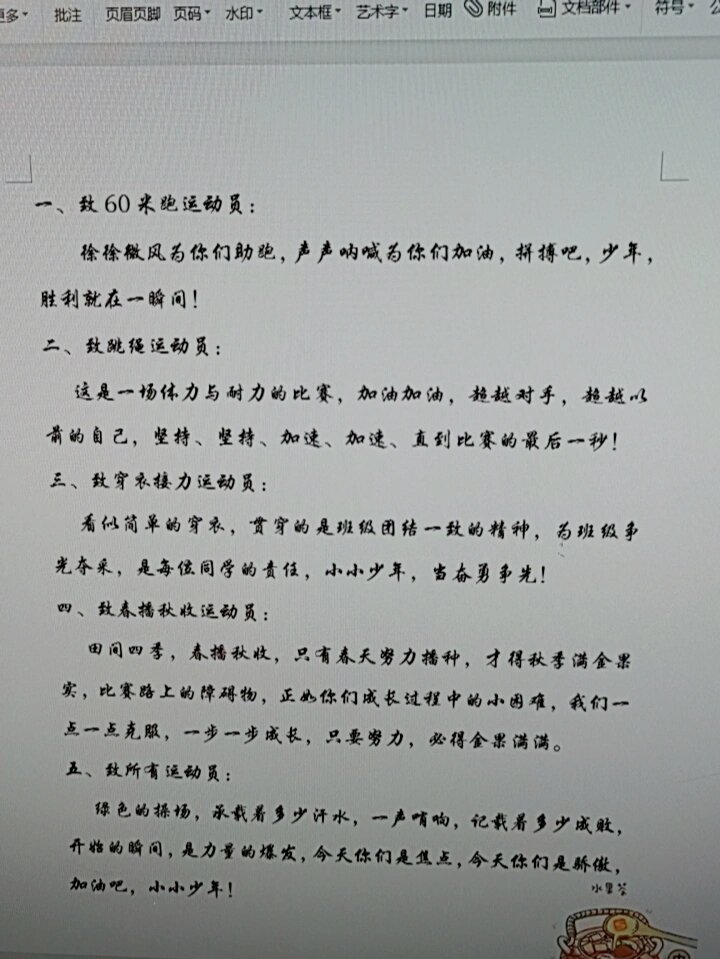 更多 批注 页眉页脚 页码 水印 文本框 艺术字 日期 附件 文档部件 符号
一、致60米跑运动员：
徐徐微风为你们助跑，声声呐喊为你们加油，拼搏吧，少年，
胜利就在一瞬间！
二、致跳绳运动员：
这是一场体力与耐力的比赛，加油加油，超越对手，超越以
前的自己，坚持、坚持、加速、加速、直到比赛的最后一秒！
三、致穿衣接力运动员：
看似简单的穿衣，贯穿的是班级团结一致的精神，为班级争
光夺采，是每位同学的责任，小小少年，当奋勇争先！
四、致春播秋收运动员：
田间四季，春播秋收，只有春天努力播种，才得秋季满金果
实，比赛路上的障碍物，正如你们成长过程中的小困难，我们一
点一点克服，一步一步成长，只要努力，必得金果满满。
五、致所有运动员：
绿色的操场，承载着多少汗水，一声哨响，记载着多少成败，
开始的瞬间，是力量的爆发，今天你们是焦点，今天你们是骄傲，
加油吧，小小少年！
水果茶